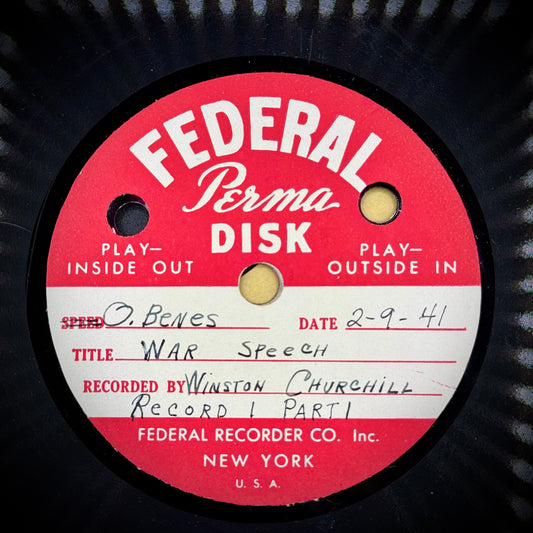 FEDERAL
Perma
DISK
PLAY—
INSIDE OUT
PLAY—
OUTSIDE IN
SPEED O. BENES DATE 2-9-41
TITLE WAR SPEECH
RECORDED BY WINSTON CHURCHILL
RECORD 1 PART 1
FEDERAL RECORDER CO. Inc.
NEW YORK
U. S. A.